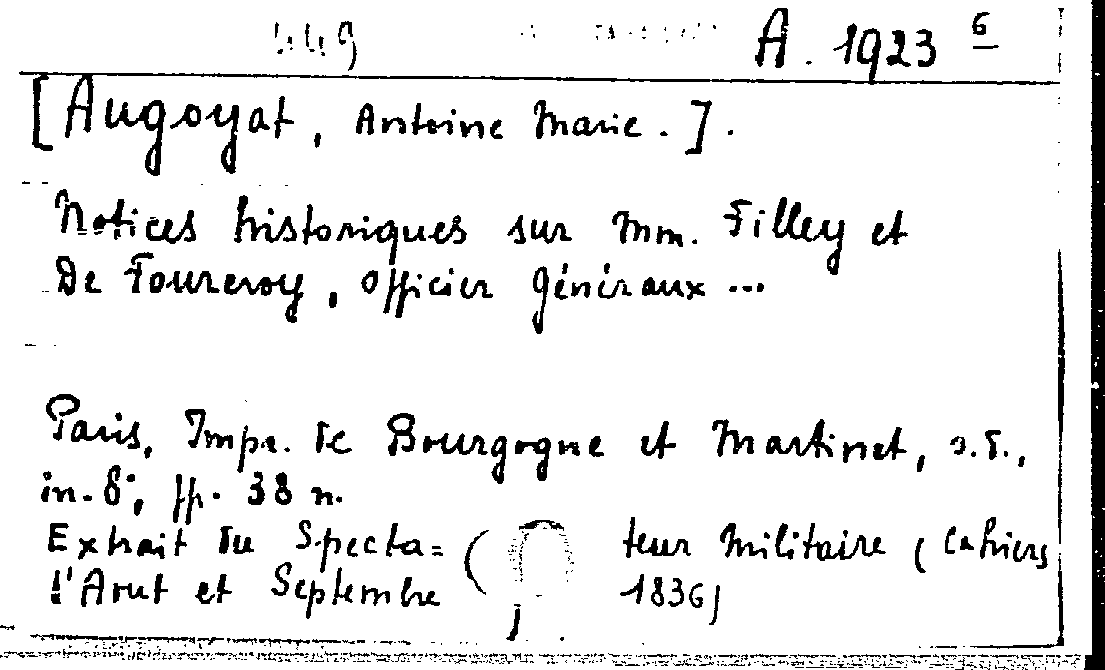 449 A. 1923 6
[Augoyat, Antoine Marie.].
Notices historiques sur MM. Filley et
De Fourcroy, officier généraux ...
Paris, Impr. de Bourgogne et Martinet, s.d.,
in-8°, pp. 38 n.
Extrait du Specta= ( teur Militaire (Cahiers
d'Aout et Septembre 1836)